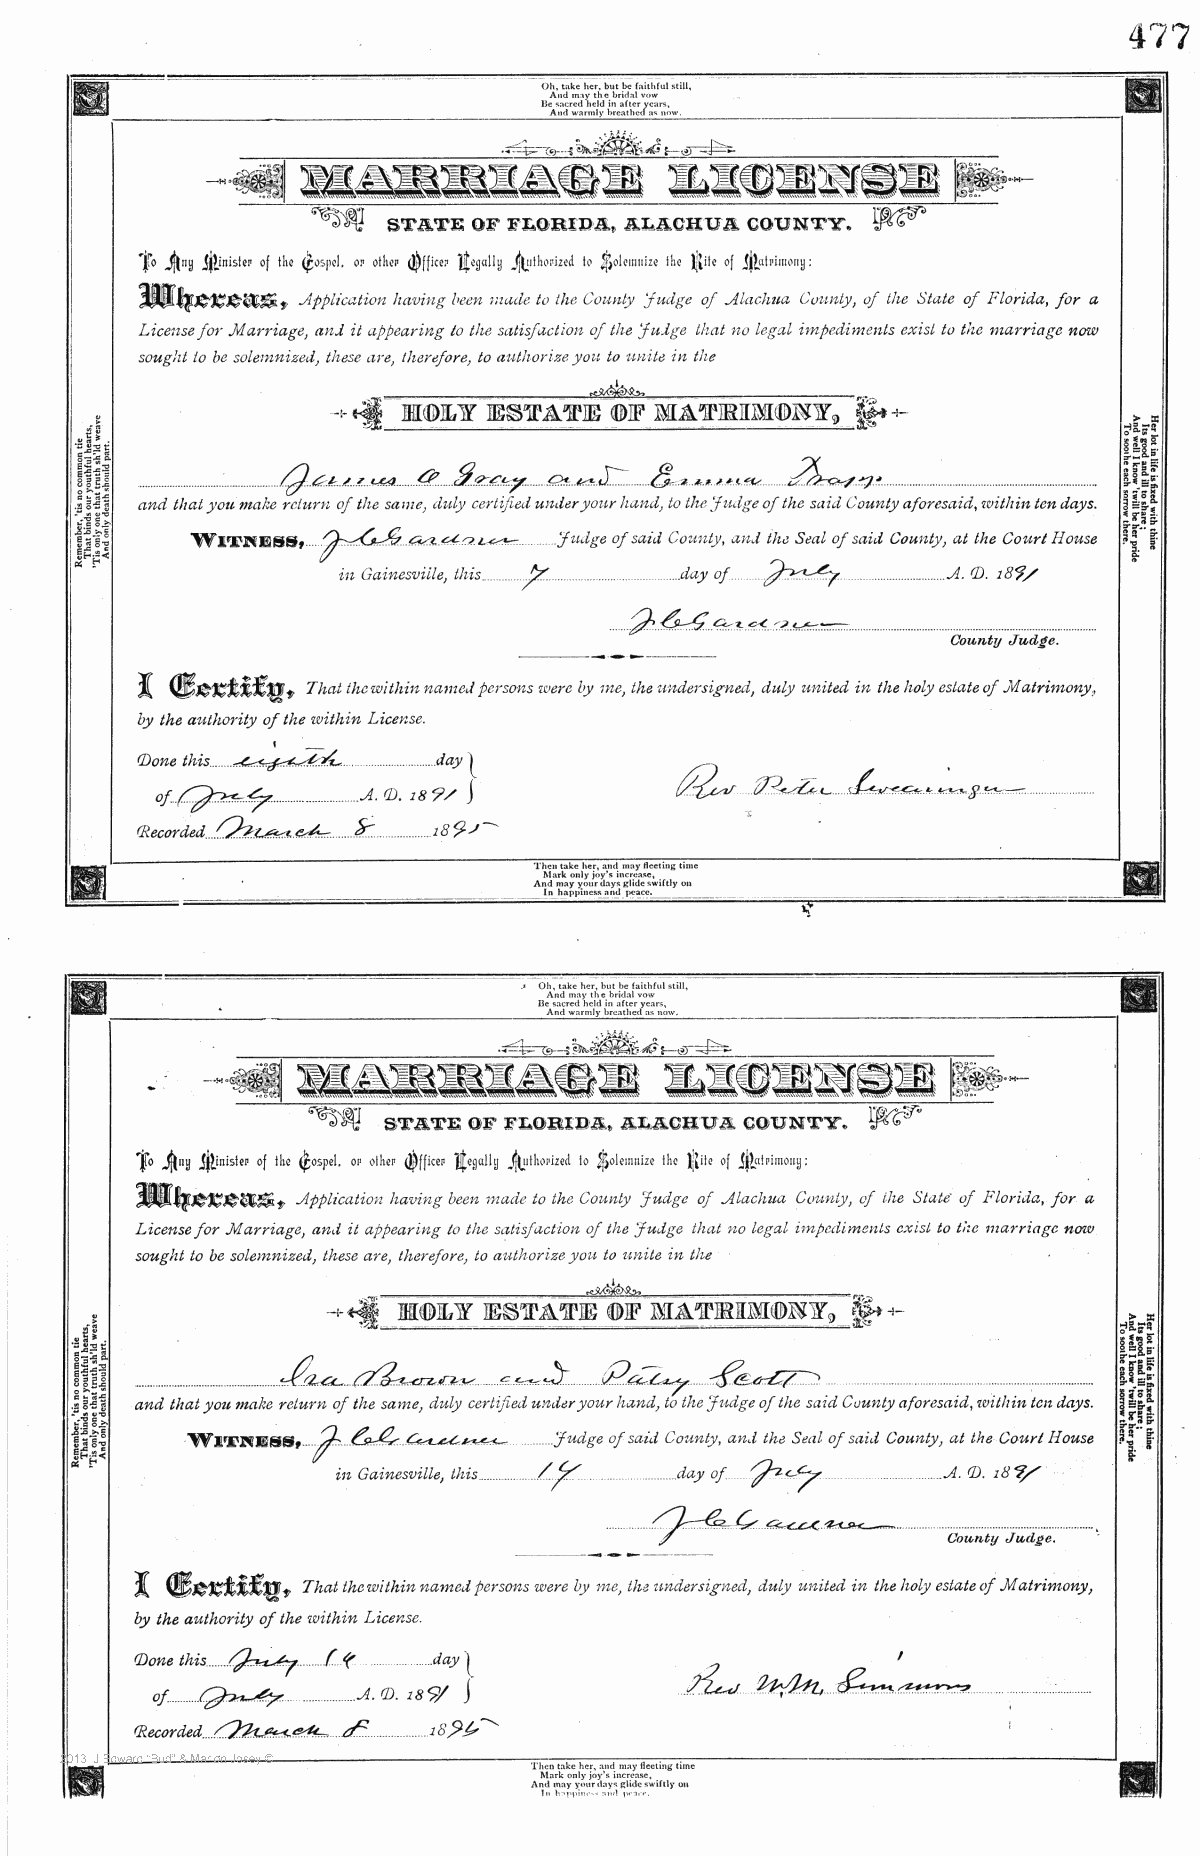 477
Oh, take her, but be faithful still,
And may the bridal vow
Be sacred held in after years,
And warmly breathed as now.
MARRIAGE LICENSE
STATE OF FLORIDA, ALACHUA COUNTY.
To Any Minister of the Gospel, or other Officer Legally Authorized to Solemnize the Rite of Matrimony:
Whereas, Application having been made to the County Judge of Alachua County, of the State of Florida, for a
License for Marriage, and it appearing to the satisfaction of the Judge that no legal impediments exist to the marriage now
sought to be solemnized, these are, therefore, to authorize you to unite in the
HOLY ESTATE OF MATRIMONY,
James O Gray and Emma Trapp
and that you make return of the same, duly certified under your hand, to the Judge of the said County aforesaid, within ten days.
WITNESS, J C Gardner Judge of said County, and the Seal of said County, at the Court House
in Gainesville, this 7 day of July A. D. 1891
J C Gardner
County Judge.
I Certify, That the within named persons were by me, the undersigned, duly united in the holy estate of Matrimony,
by the authority of the within License.
Done this eighth day
of July A. D. 1891
Rev Peter Swearingen
Recorded March 8 1895
Remember, 'tis no common tie
That binds our youthful hearts,
'Tis only one that truth sh'ld weave
And only death should part.
Her lot in life is fixed with thine
Its good and ill to share;
And well I know 'twill be her pride
To soothe each sorrow there.
Then take her, and may fleeting time
Mark only joy's increase,
And may your days glide swiftly on
In happiness and peace.
Oh, take her, but be faithful still,
And may the bridal vow
Be sacred held in after years,
And warmly breathed as now.
MARRIAGE LICENSE
STATE OF FLORIDA, ALACHUA COUNTY.
To Any Minister of the Gospel, or other Officer Legally Authorized to Solemnize the Rite of Matrimony:
Whereas, Application having been made to the County Judge of Alachua County, of the State of Florida, for a
License for Marriage, and it appearing to the satisfaction of the Judge that no legal impediments exist to the marriage now
sought to be solemnized, these are, therefore, to authorize you to unite in the
HOLY ESTATE OF MATRIMONY,
Ira Brown and Patsy Scott
and that you make return of the same, duly certified under your hand, to the Judge of the said County aforesaid, within ten days.
WITNESS, J C Gardner Judge of said County, and the Seal of said County, at the Court House
in Gainesville, this 14 day of July A. D. 1891
J C Gardner
County Judge.
I Certify, That the within named persons were by me, the undersigned, duly united in the holy estate of Matrimony,
by the authority of the within License.
Done this July 14 day
of July A. D. 1891
Rev W.M. Simmons
Recorded March 8 1895
Remember, 'tis no common tie
That binds our youthful hearts,
'Tis only one that truth sh'ld weave
And only death should part.
Her lot in life is fixed with thine
Its good and ill to share;
And well I know 'twill be her pride
To soothe each sorrow there.
2013 J Edward "Bud" & Marion Josey ©
Then take her, and may fleeting time
Mark only joy's increase,
And may your days glide swiftly on
In happiness and peace.